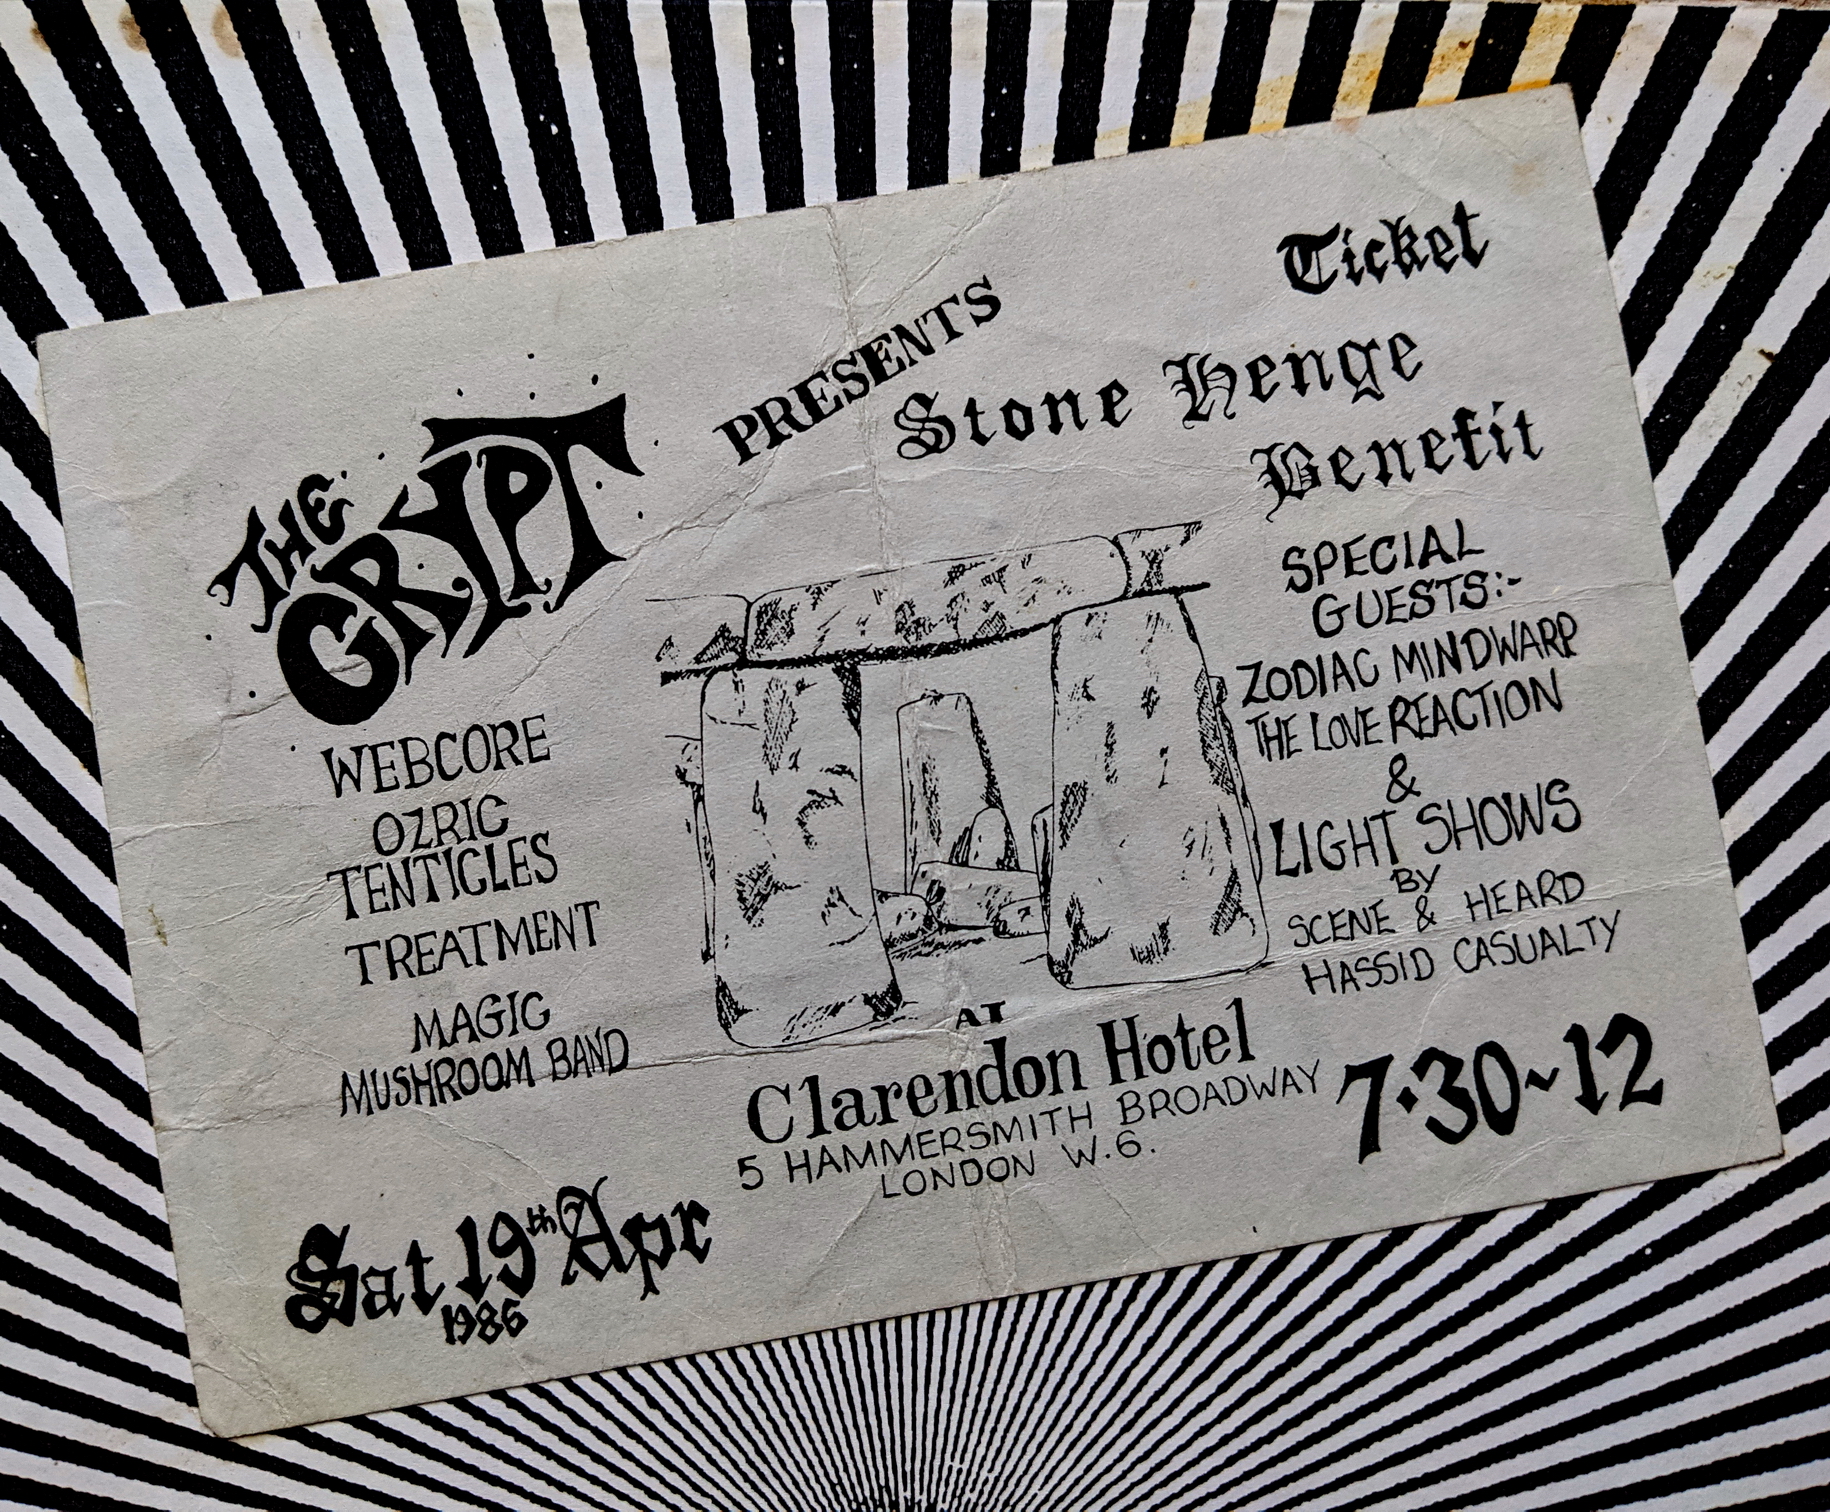 Ticket
THE
CRYPT
PRESENTS
Stone Henge
Benefit
WEBCORE
OZRIC
TENTICLES
TREATMENT
MAGIC
MUSHROOM BAND
SPECIAL
GUESTS:-
ZODIAC MINDWARP
THE LOVE REACTION
&
LIGHT SHOWS
BY
SCENE & HEARD
HASSID CASUALTY
AT
Clarendon Hotel
5 HAMMERSMITH BROADWAY
LONDON W.6.
7.30~12
Sat 19th Apr
1986